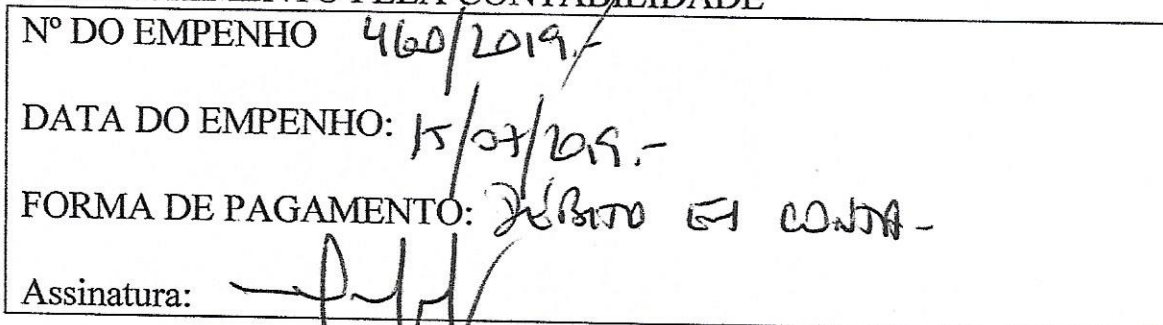 PELA CONTABILIDADE
Nº DO EMPENHO 460/2019.-
DATA DO EMPENHO: 15/07/2019.-
FORMA DE PAGAMENTO: DÉBITO EM CONTA-
Assinatura: